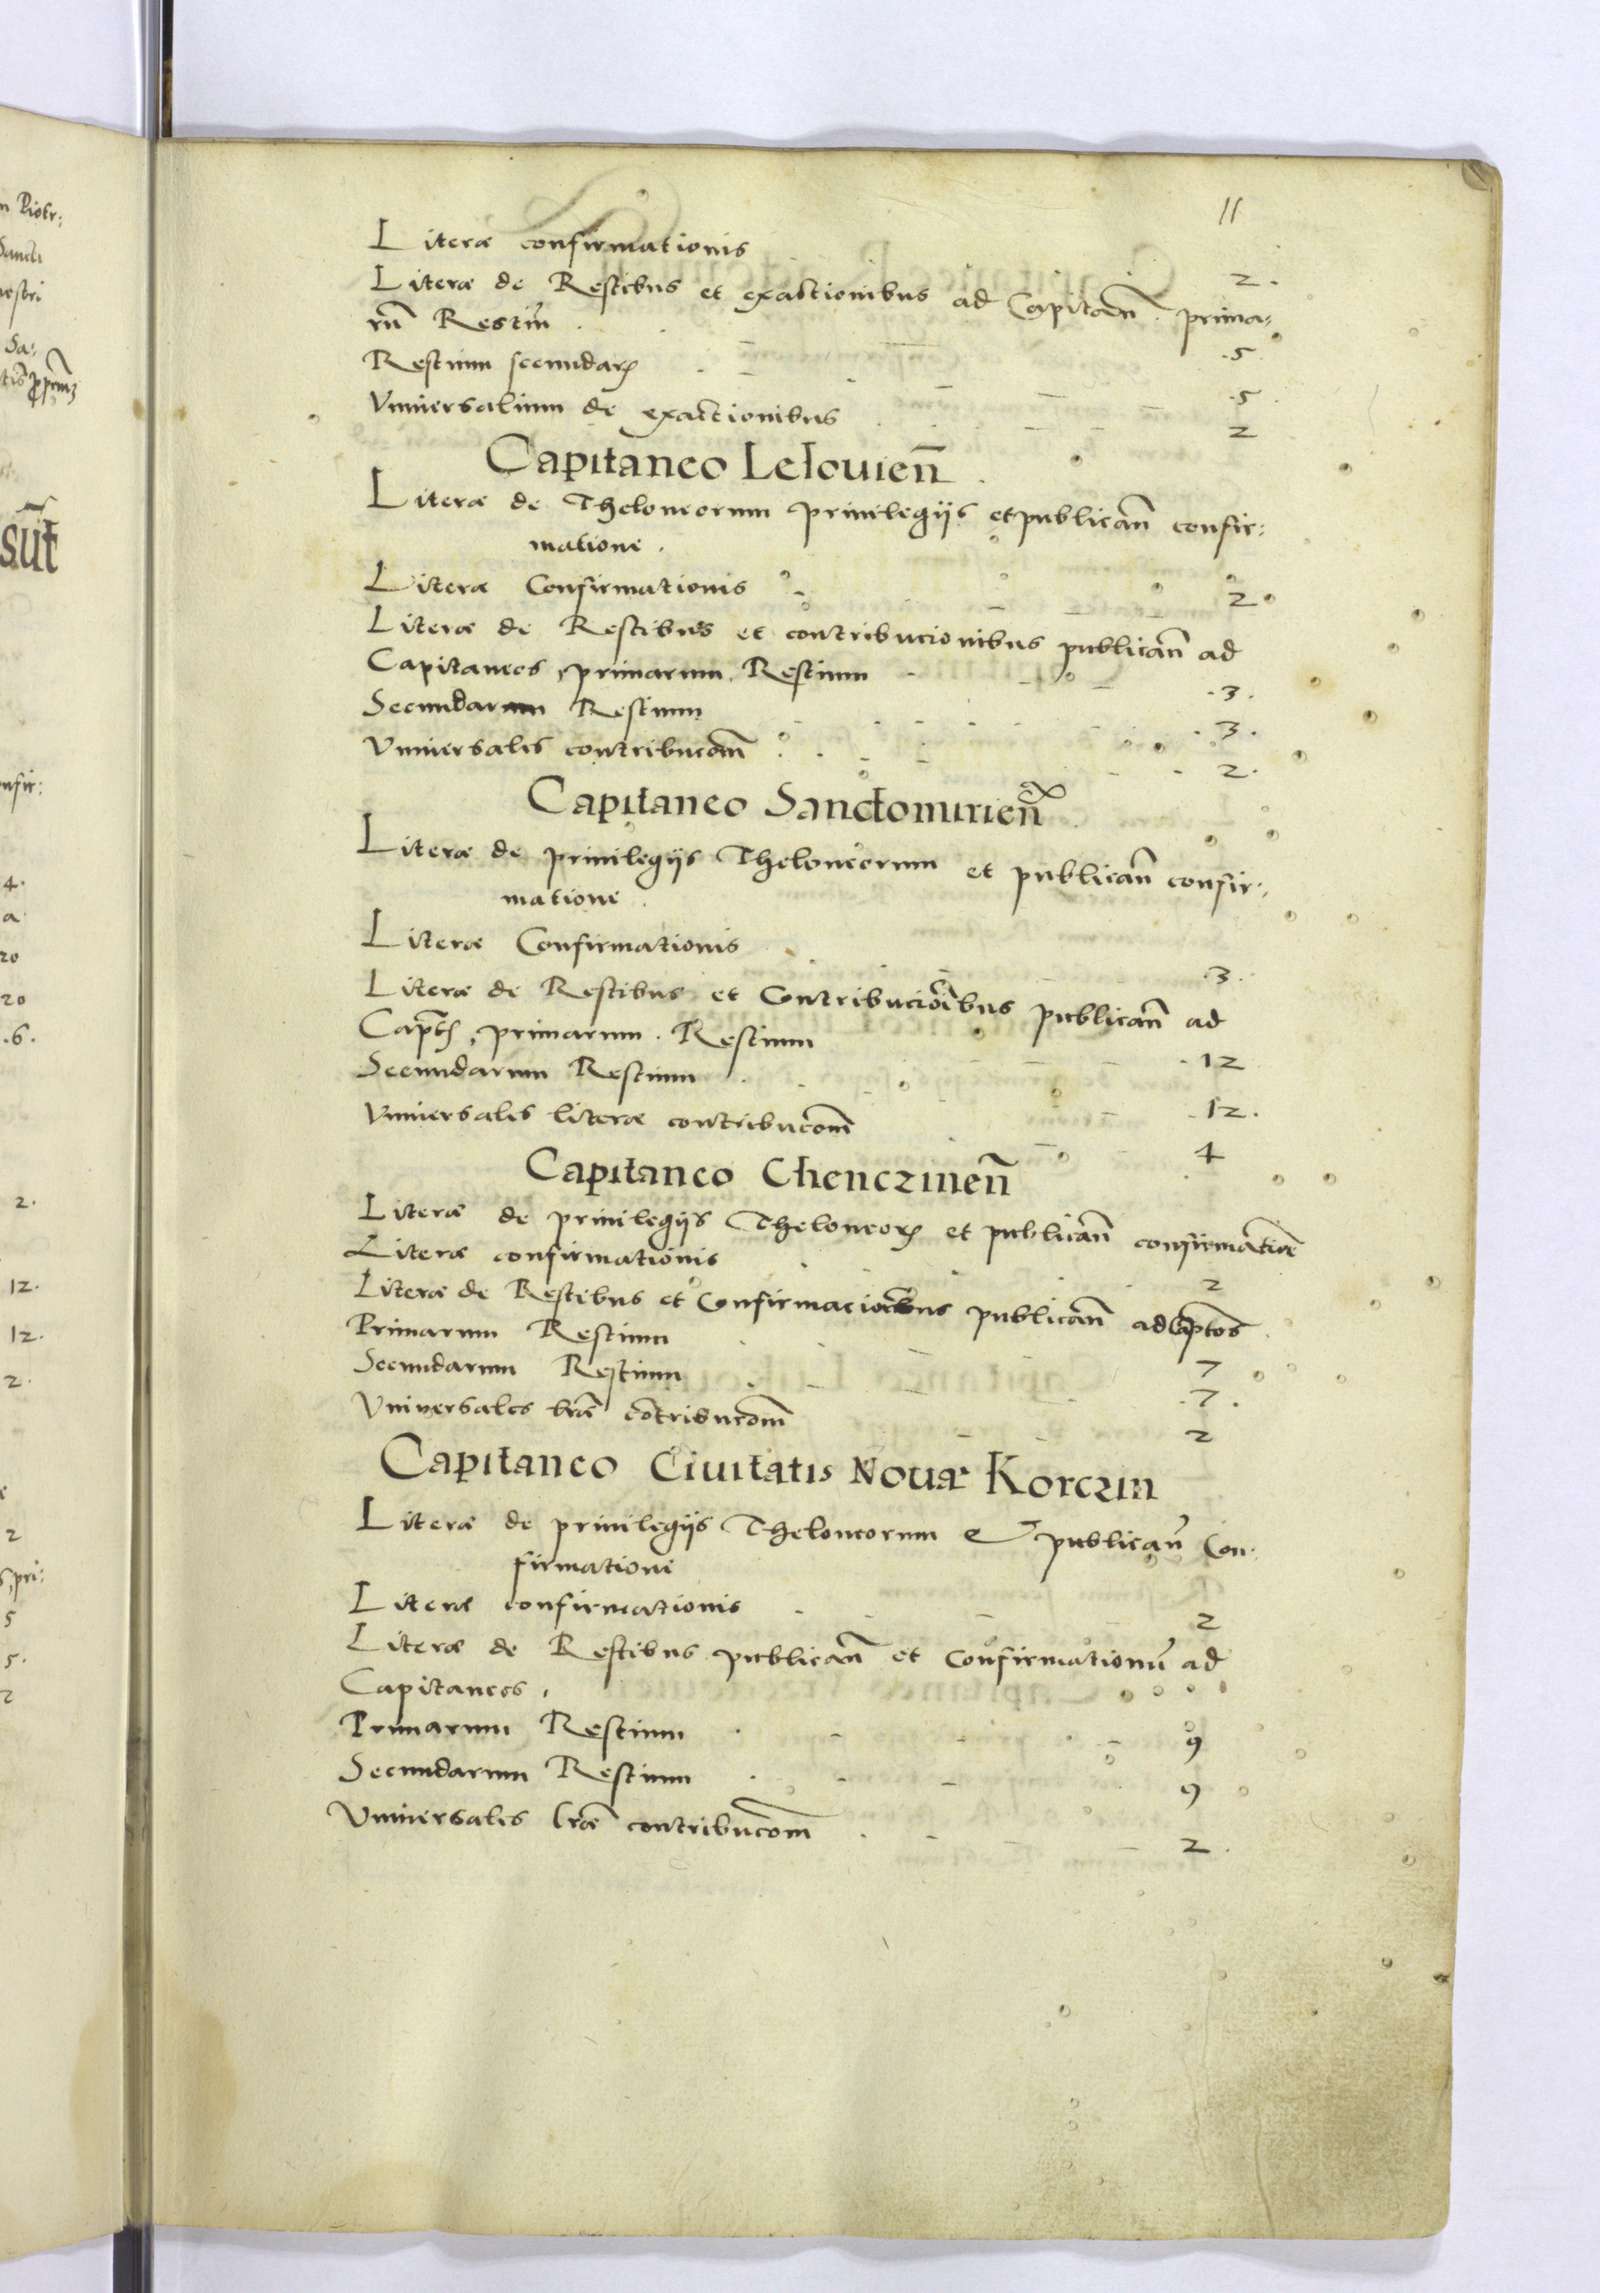 11
Literæ confirmationis 2.
Literæ de Restibus et exactionibus ad Capitan̄. prima⸗
rū Restiū . 5
Restium secundarꝝ 5
Vniuersalium de exactionibus 2
Capitaneo Lelouien̄
Literæ de Theloneorum priuilegijs et publican̄ confir:
matione.
Literæ Confirmationis 2
Literæ de Restibus et contribucionibus publican̄ ad
Capitaneos, primarum Restium 3.
Secundarum Restium 3.
Vniuersales contribucom̄ 2.
Capitaneo Sanctomirien̄
Literæ de priuilegijs Theloneorum et publican̄ confir:
matione.
Literæ Confirmationis 3.
Literæ de Restibus et Contribucioībus publican̄ ad
Capt̄ꝭ, primarum Restium 12
Secundarum Restium 12.
Vniuersales literæ contribucom̄ 4
Capitaneo Chenczinen̄
Literæ de priuilegijs Theloneorꝝ et publican̄ confirmatiōe
Literæ confirmationis 2
Literæ de Restibus et Confirmacioībus publican̄ ad Capt̄os
Primarum Restium 7
Secundarum Restium 7.
Vniuersales lr̄æ cōtribucom̄ 2
Capitaneo Ciuitatis Nouæ Korczin
Literæ de priuilegijs Theloneorum & publican̄ Con⸗
firmatione
Literæ confirmationis 2
Literæ de Restibus publican̄ et Confirmationū ad
Capitaneos,
Primarum Restium 9
Secundarum Restium 9
Vniuersales lr̄æ contribucom̄ 2.
n Piotr:
Sancti
Sa:
sūt
nfir:
4.
a
20
20
.6.
2.
12.
12.
2.
2
s, pri:
5
5.
2